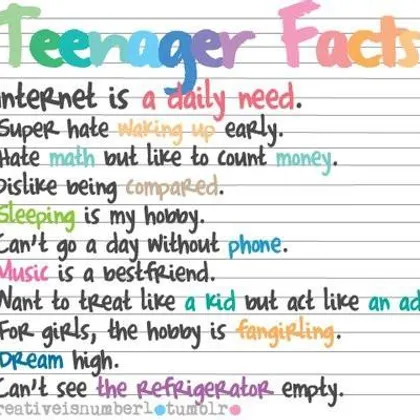 Teenager Facts
internet is a daily need.
Super hate waking up early.
Hate math but like to count money.
Dislike being compared.
Sleeping is my hobby.
Can't go a day without phone.
Music is a bestfriend.
Want to treat like a kid but act like an ad
For girls, the hobby is fangirling.
Dream high.
Can't see the refrigerator empty.
reativeisnumber1•tumblr•